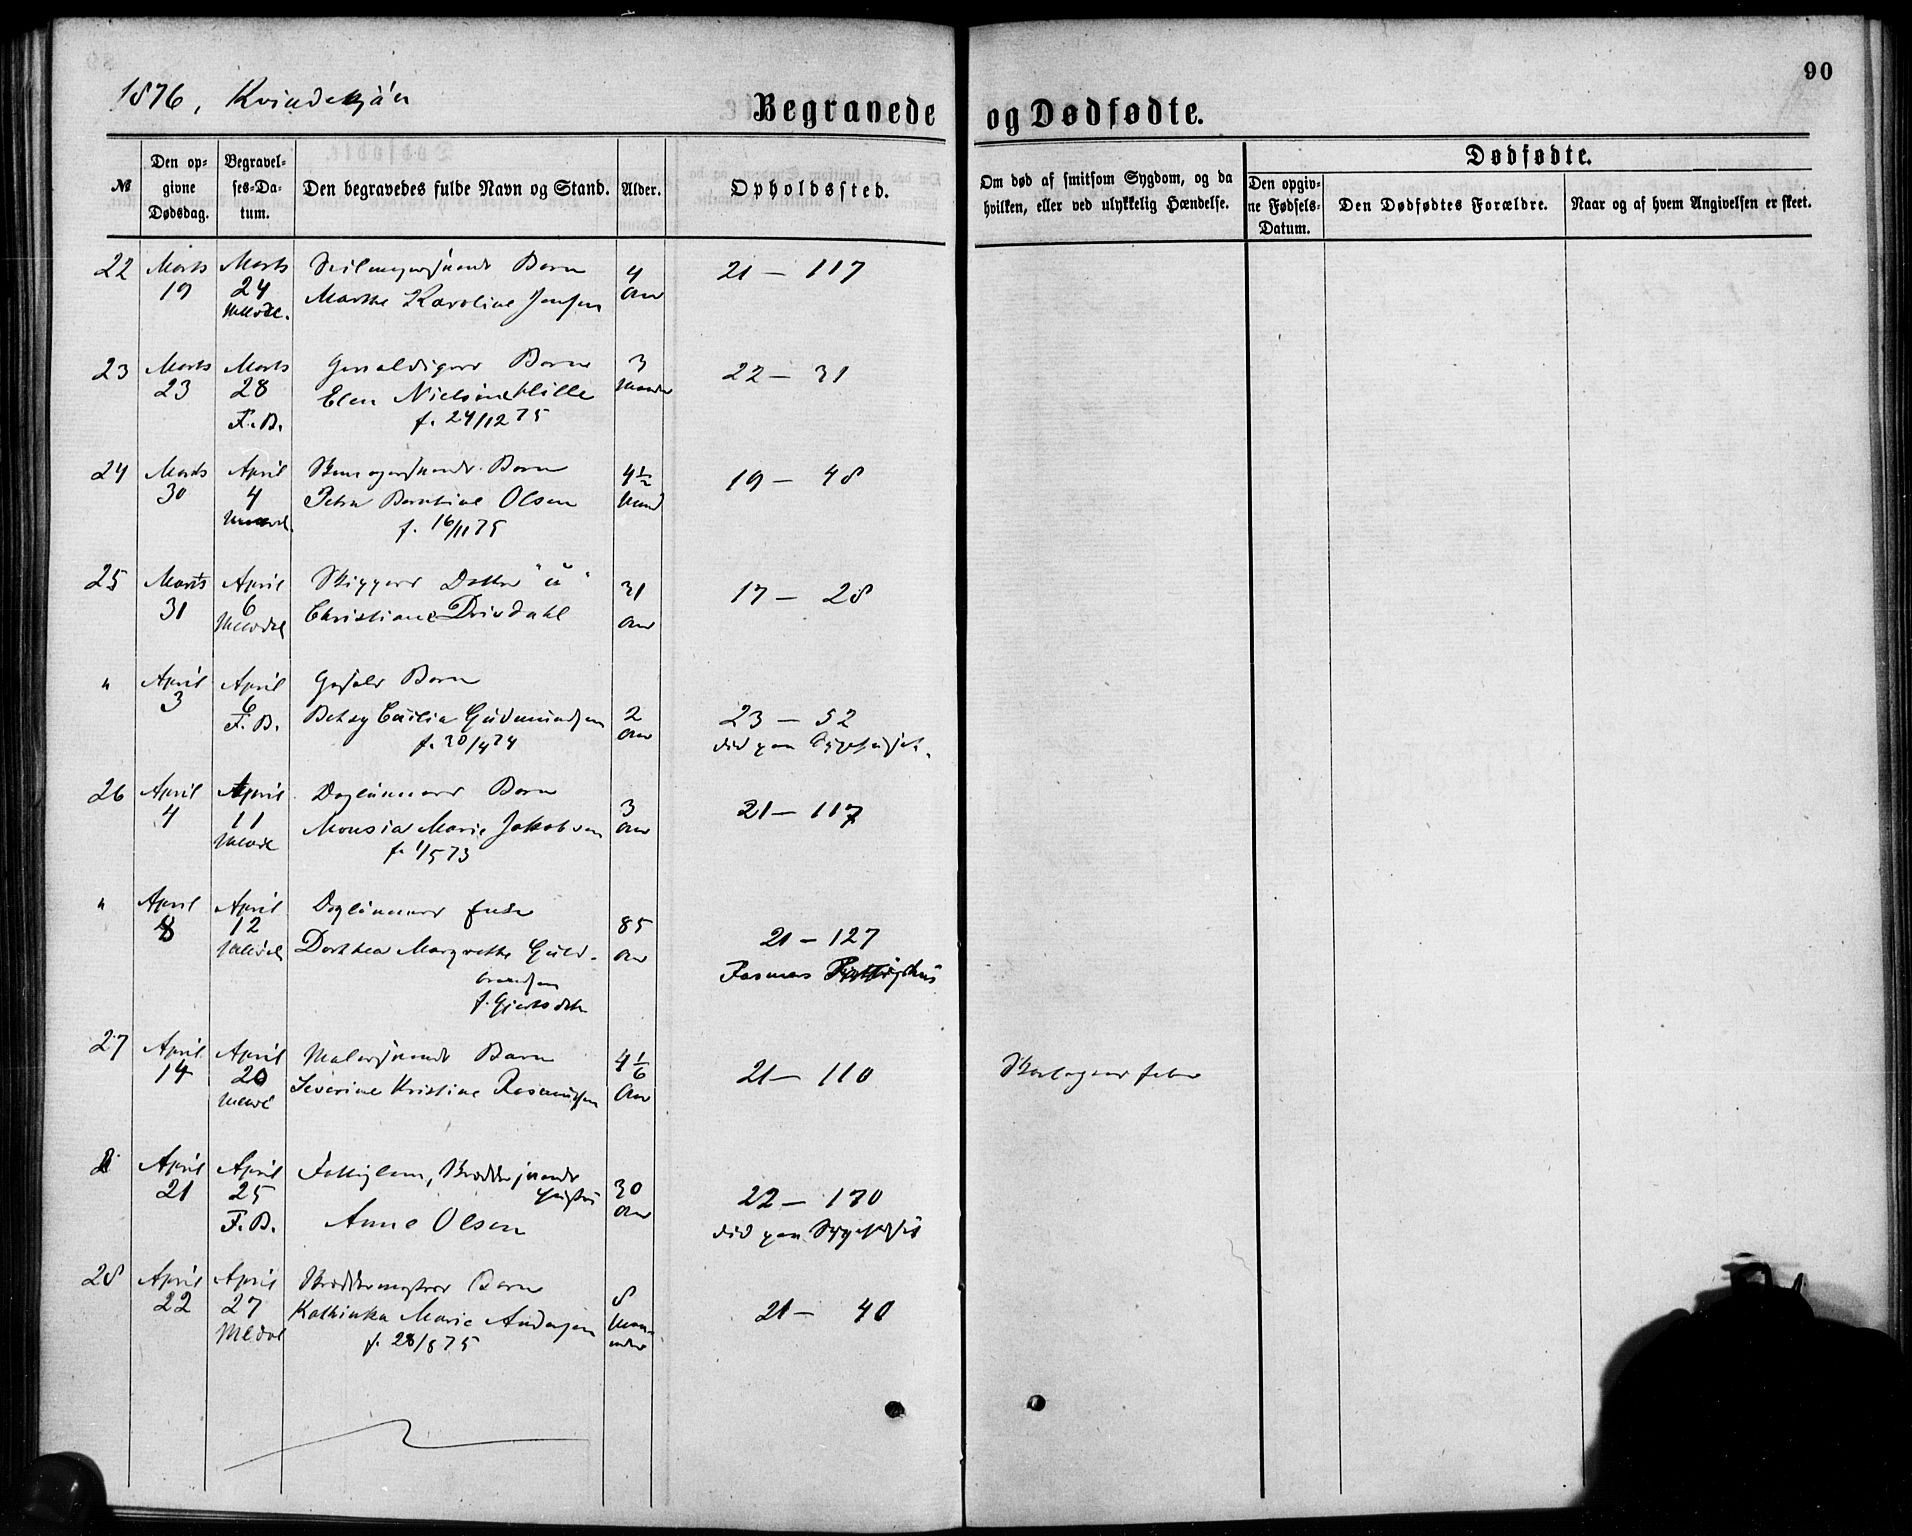 1876, Kvindekjøn
Begravede og Dødfødte.
90
№
Den opgivne Dødsdag.
Begravelses-Datum.
Den begravedes fulde Navn og Stand.
Alder.
Opholdssted.
Om død af smitsom Sygdom, og da hvilken, eller ved ulykkelig Hændelse.
Dødfødte.
Den opgivne Fødsels-Datum.
Den Dødfødtes Forældre.
Naar og af hvem Angivelsen er skeet.
22 Marts 19 Marts 24 Barn 4 Aar 21 – 117
Marthe Karoline Jensen
23 Marts 23 Marts 28 F. B. Barn 3 Maaneder 22 – 31
Elen Nielsine Hille
f. 24/12 75
24 Marts 30 April 4 Barn 4½ Maand 19 – 48
Petra Berntine Olsen
f. 16/11 75
25 Marts 31 April 6 Datter 31 Aar 17 – 28
Christiane Drivdahl
" April 3 April 6 F. B. Barn 2 Aar 23 – 52
Betsy Cecilia Gudmundsen
f. 30/4 74
død paa Sygehuset.
26 April 4 April 11 Daglønners Barn 3 Aar 21 – 117
Monsia Marie Jakobsen
f. 1/5 73
" April 8 April 12 Daglønners Enke 85 Aar 21 – 127
Dorthea Margrethe Guldbrandsen
f. Gjertsdtr
Rasmus
27 April 14 April 20 Malersvends Barn 4 1/6 Aar 21 – 110
Severine Kristine Rasmussen
Skarlagens feber
April 21 April 25 F. B. Fattiglem, Bødkersvends Hustru 30 Aar 22 – 170
Anne Olsen
død paa Sygehuset
28 April 22 April 27 Bødkermesters Barn 8 Maaneder 21 – 40
Kathinka Marie Andersen
f. 28/8 75